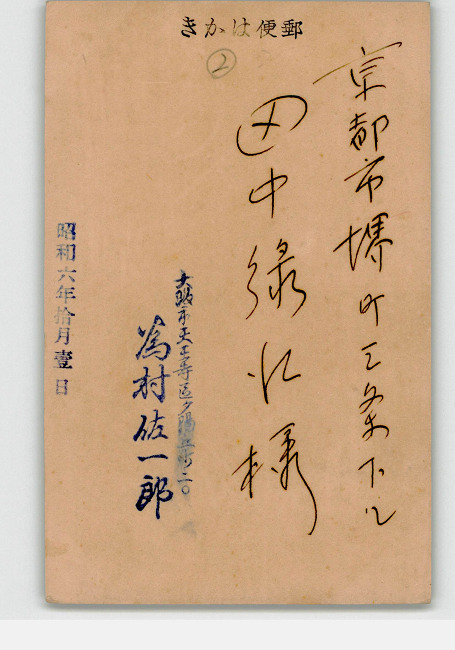 郵便はかき
②
京都市堺町三条下ル
田中緑紅様
大阪市天王寺区夕陽丘町二〇
為村佐一郎
昭和六年拾月壹日